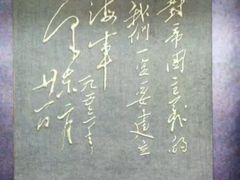 對帝国主义的
我們一定要建立
海軍
一九五三年
毛泽东
廿一日